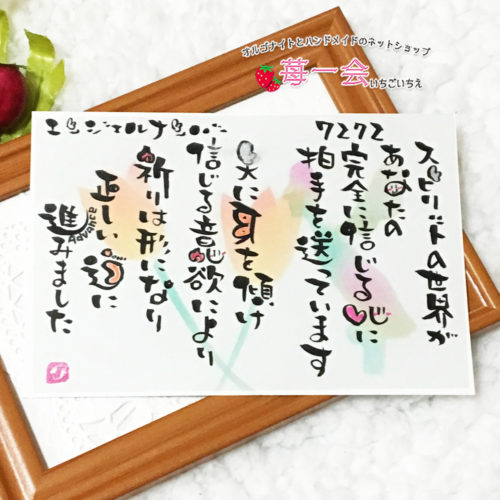 オルゴナイトとハンドメイドのネットショップ
苺一会いちごいちえ
エンジェルナンバー 7272
スピリットの世界が
あなたの
完全に信じる心に
相手を送っています
天に耳を傾け
信じる意欲により
祈りは形になり
正しい道に
Advance
進みました